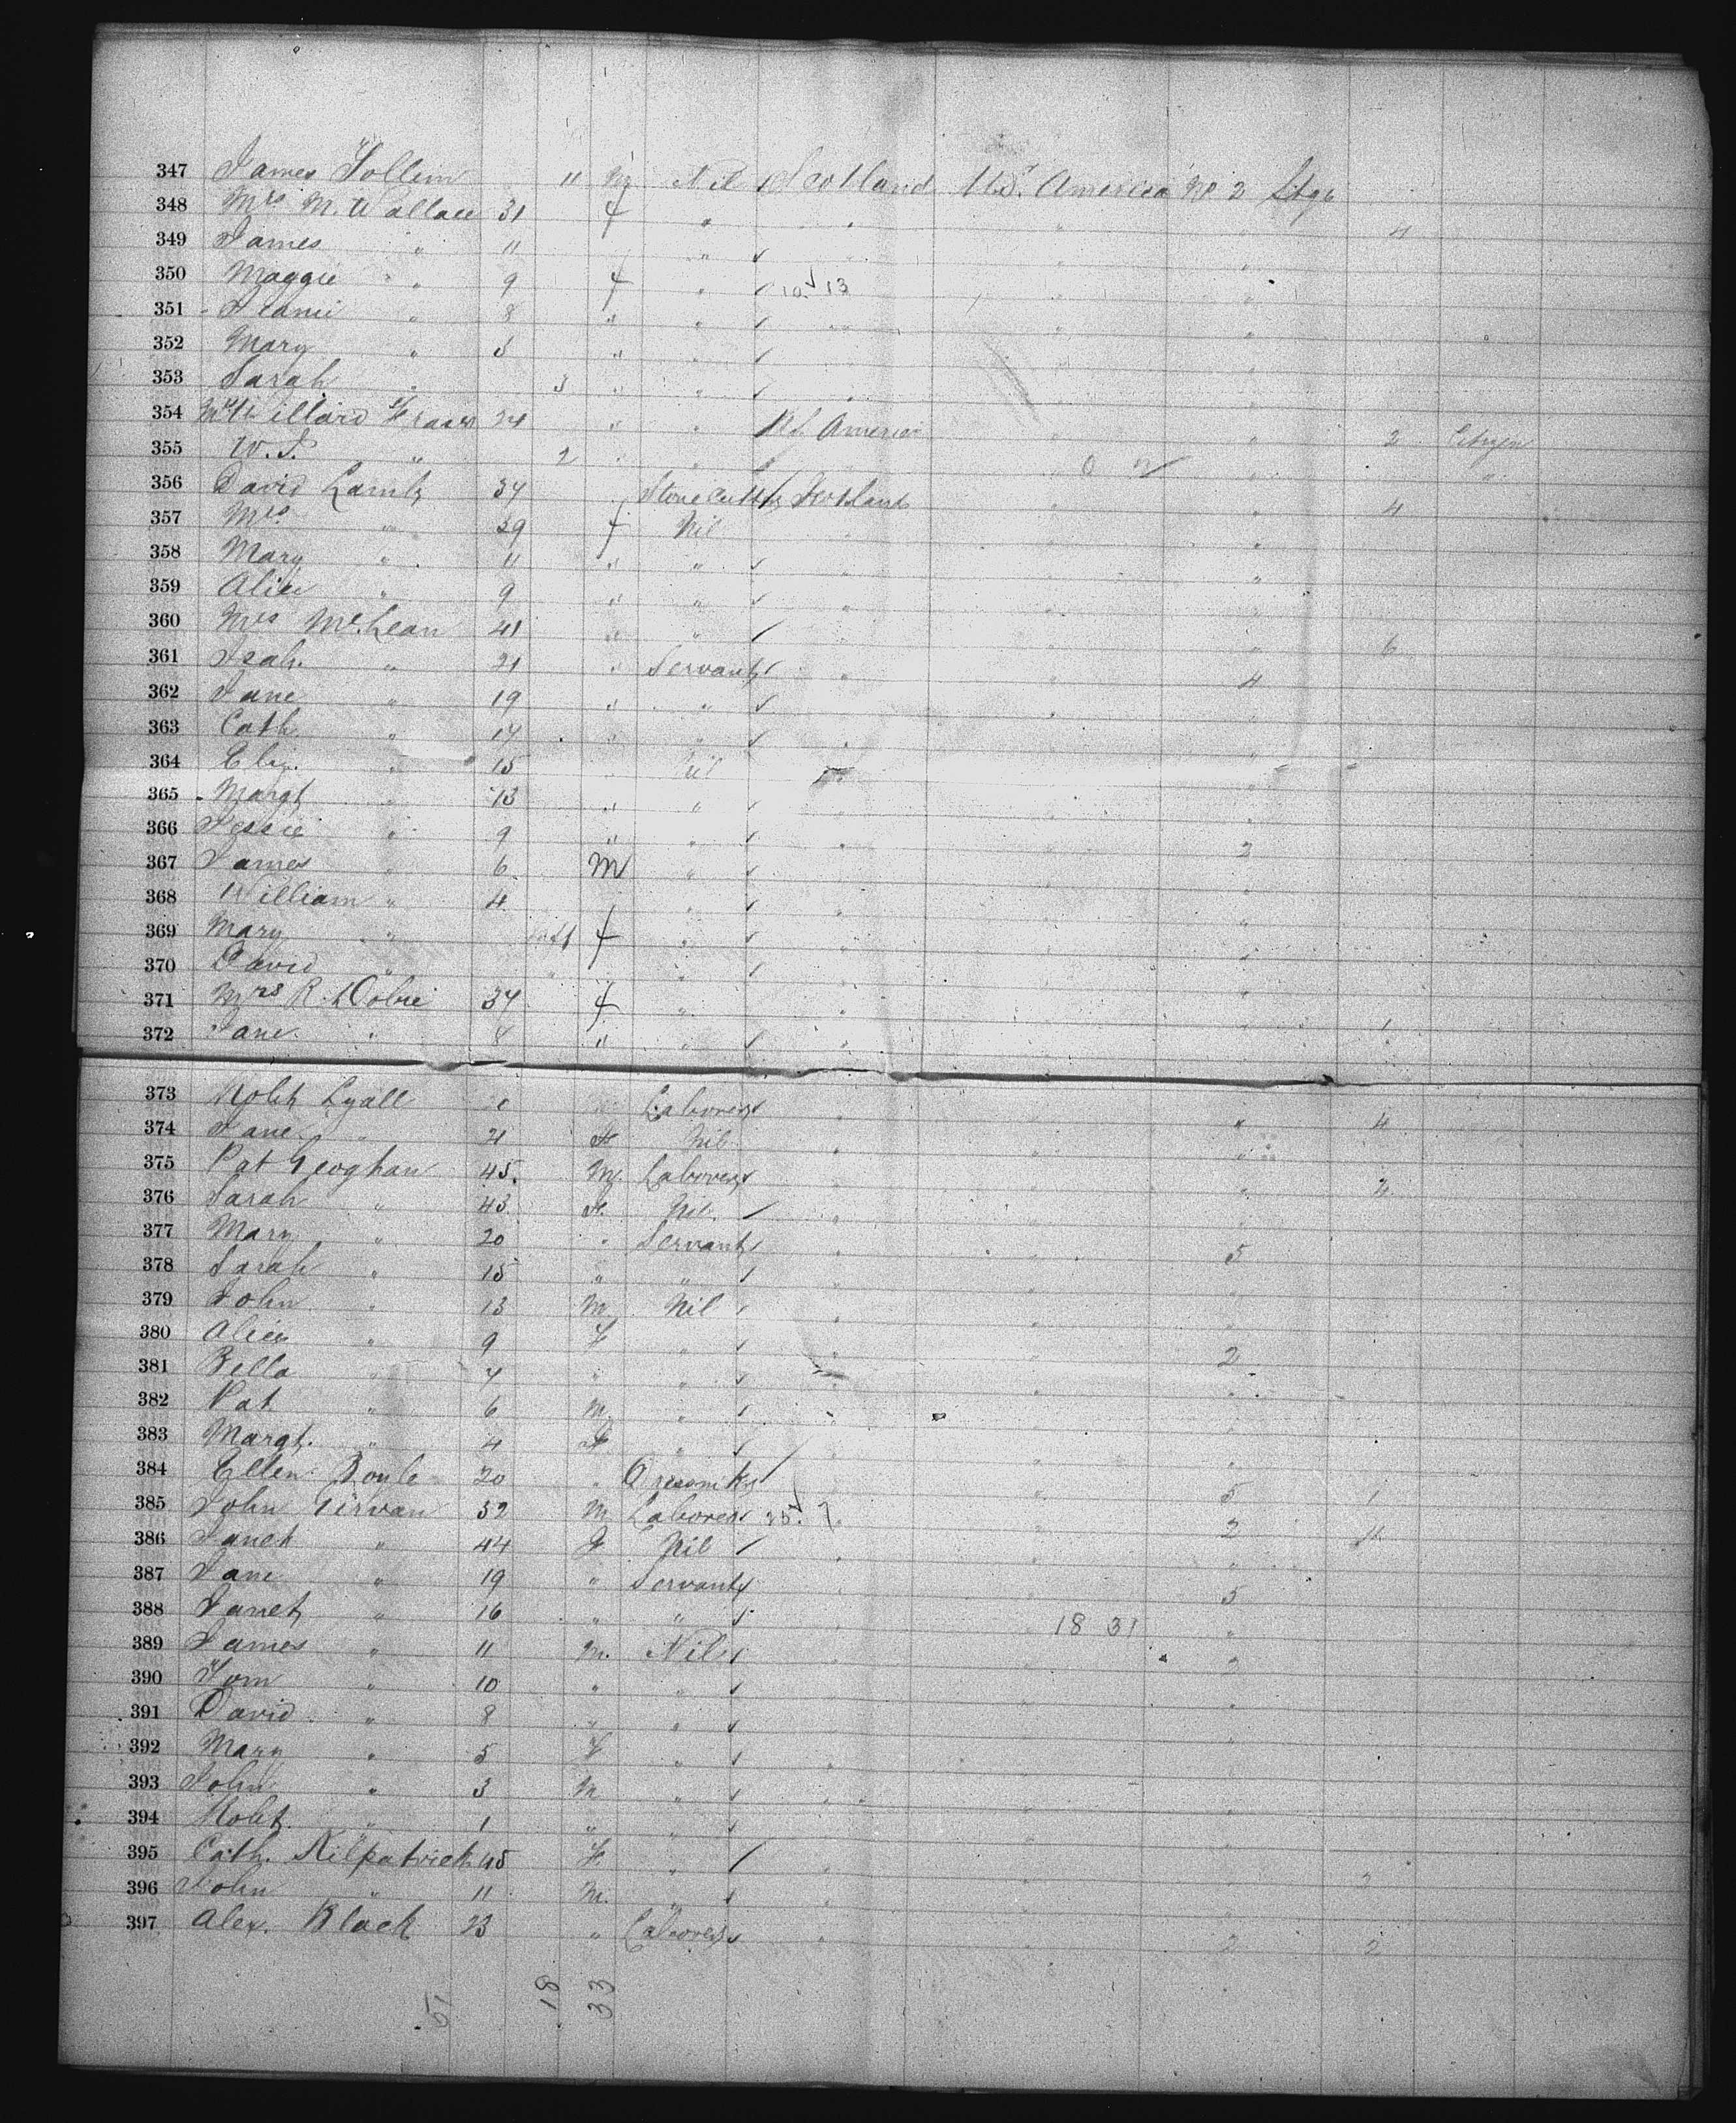 347 James Tollim 11 M Nil Scotland U.S. America No 2 Stge
348 Mrs M. Wallace 31 f " " " " 4
349 James " 11 " "
350 Maggie " 9 f " 10 13 "
351 " 8 " " "
352 Mary " 5 " " "
353 Sarah " 3 " " "
354 Mrs Willard Fraser 24 " " U.S. America " " 2 Citizen
355 W. S. " 2 " " " "
356 David Lamb 34 Stonecutter Scotland " " 4
357 Mrs " 29 f Nil " "
358 Mary " 11 " " " "
359 Alice " 9 " " " "
360 Mrs McLean 41 " " " 6
361 Isab. " 21 " Servant " " 4
362 Jane " 19 " " " "
363 Cath " 17 " " " "
364 Eliz. " 15 " Nil "
365 Margt " 13 " " " "
366 Jessie " 9 " " " 2
367 James " 6 M " " "
368 William " 4 " " "
369 Mary " inft f " " "
370 David " " " "
371 Mrs R. Dobie 34 f " " " 1
372 Jane " 8 " " "
373 Robt Lyall Laborer " " " 4
374 Jane " 21 F Nil " "
375 Pat Geoghan 45 M Laborer " 2
376 Sarah " 43 F. Nil "
377 Mary " 20 " Servant " " 5
378 Sarah " 15 " " " "
379 John " 13 M Nil " "
380 Alice " 9 F " " " 2
381 Bella " 7 " " " "
382 Pat " 6 M " " "
383 Margt. " 4 F " " "
384 Ellen Boyle 20 " Dressmkr " 5 1
385 John Girvan 32 M Laborer 25 7 " 2
386 Janet " 44 F Nil " " "
387 Jane " 19 " Servant " 5
388 Janet " 16 " " 18 31 "
389 James " 11 M. Nil " " 2
390 Tom " 10 " " "
391 David " 8 " " "
392 Mary " 5 F " " "
393 John " 3 M " " "
394 Robt. " 1 " " " "
395 Cath. Kilpatrick 45 F " " " 2
396 John " 11 M. " " "
397 Alex. Black 23 " Laborer " 2 2
51 18 33